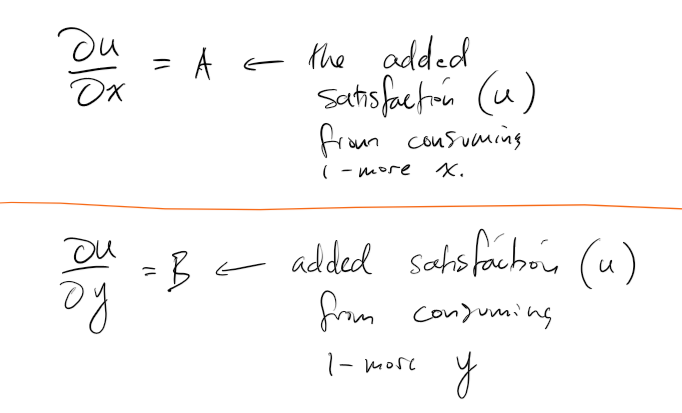 ∂u/∂x = A ← the added
satisfaction (u)
from consuming
1-more x.
∂u/∂y = B ← added satisfaction (u)
from consuming
1-more y